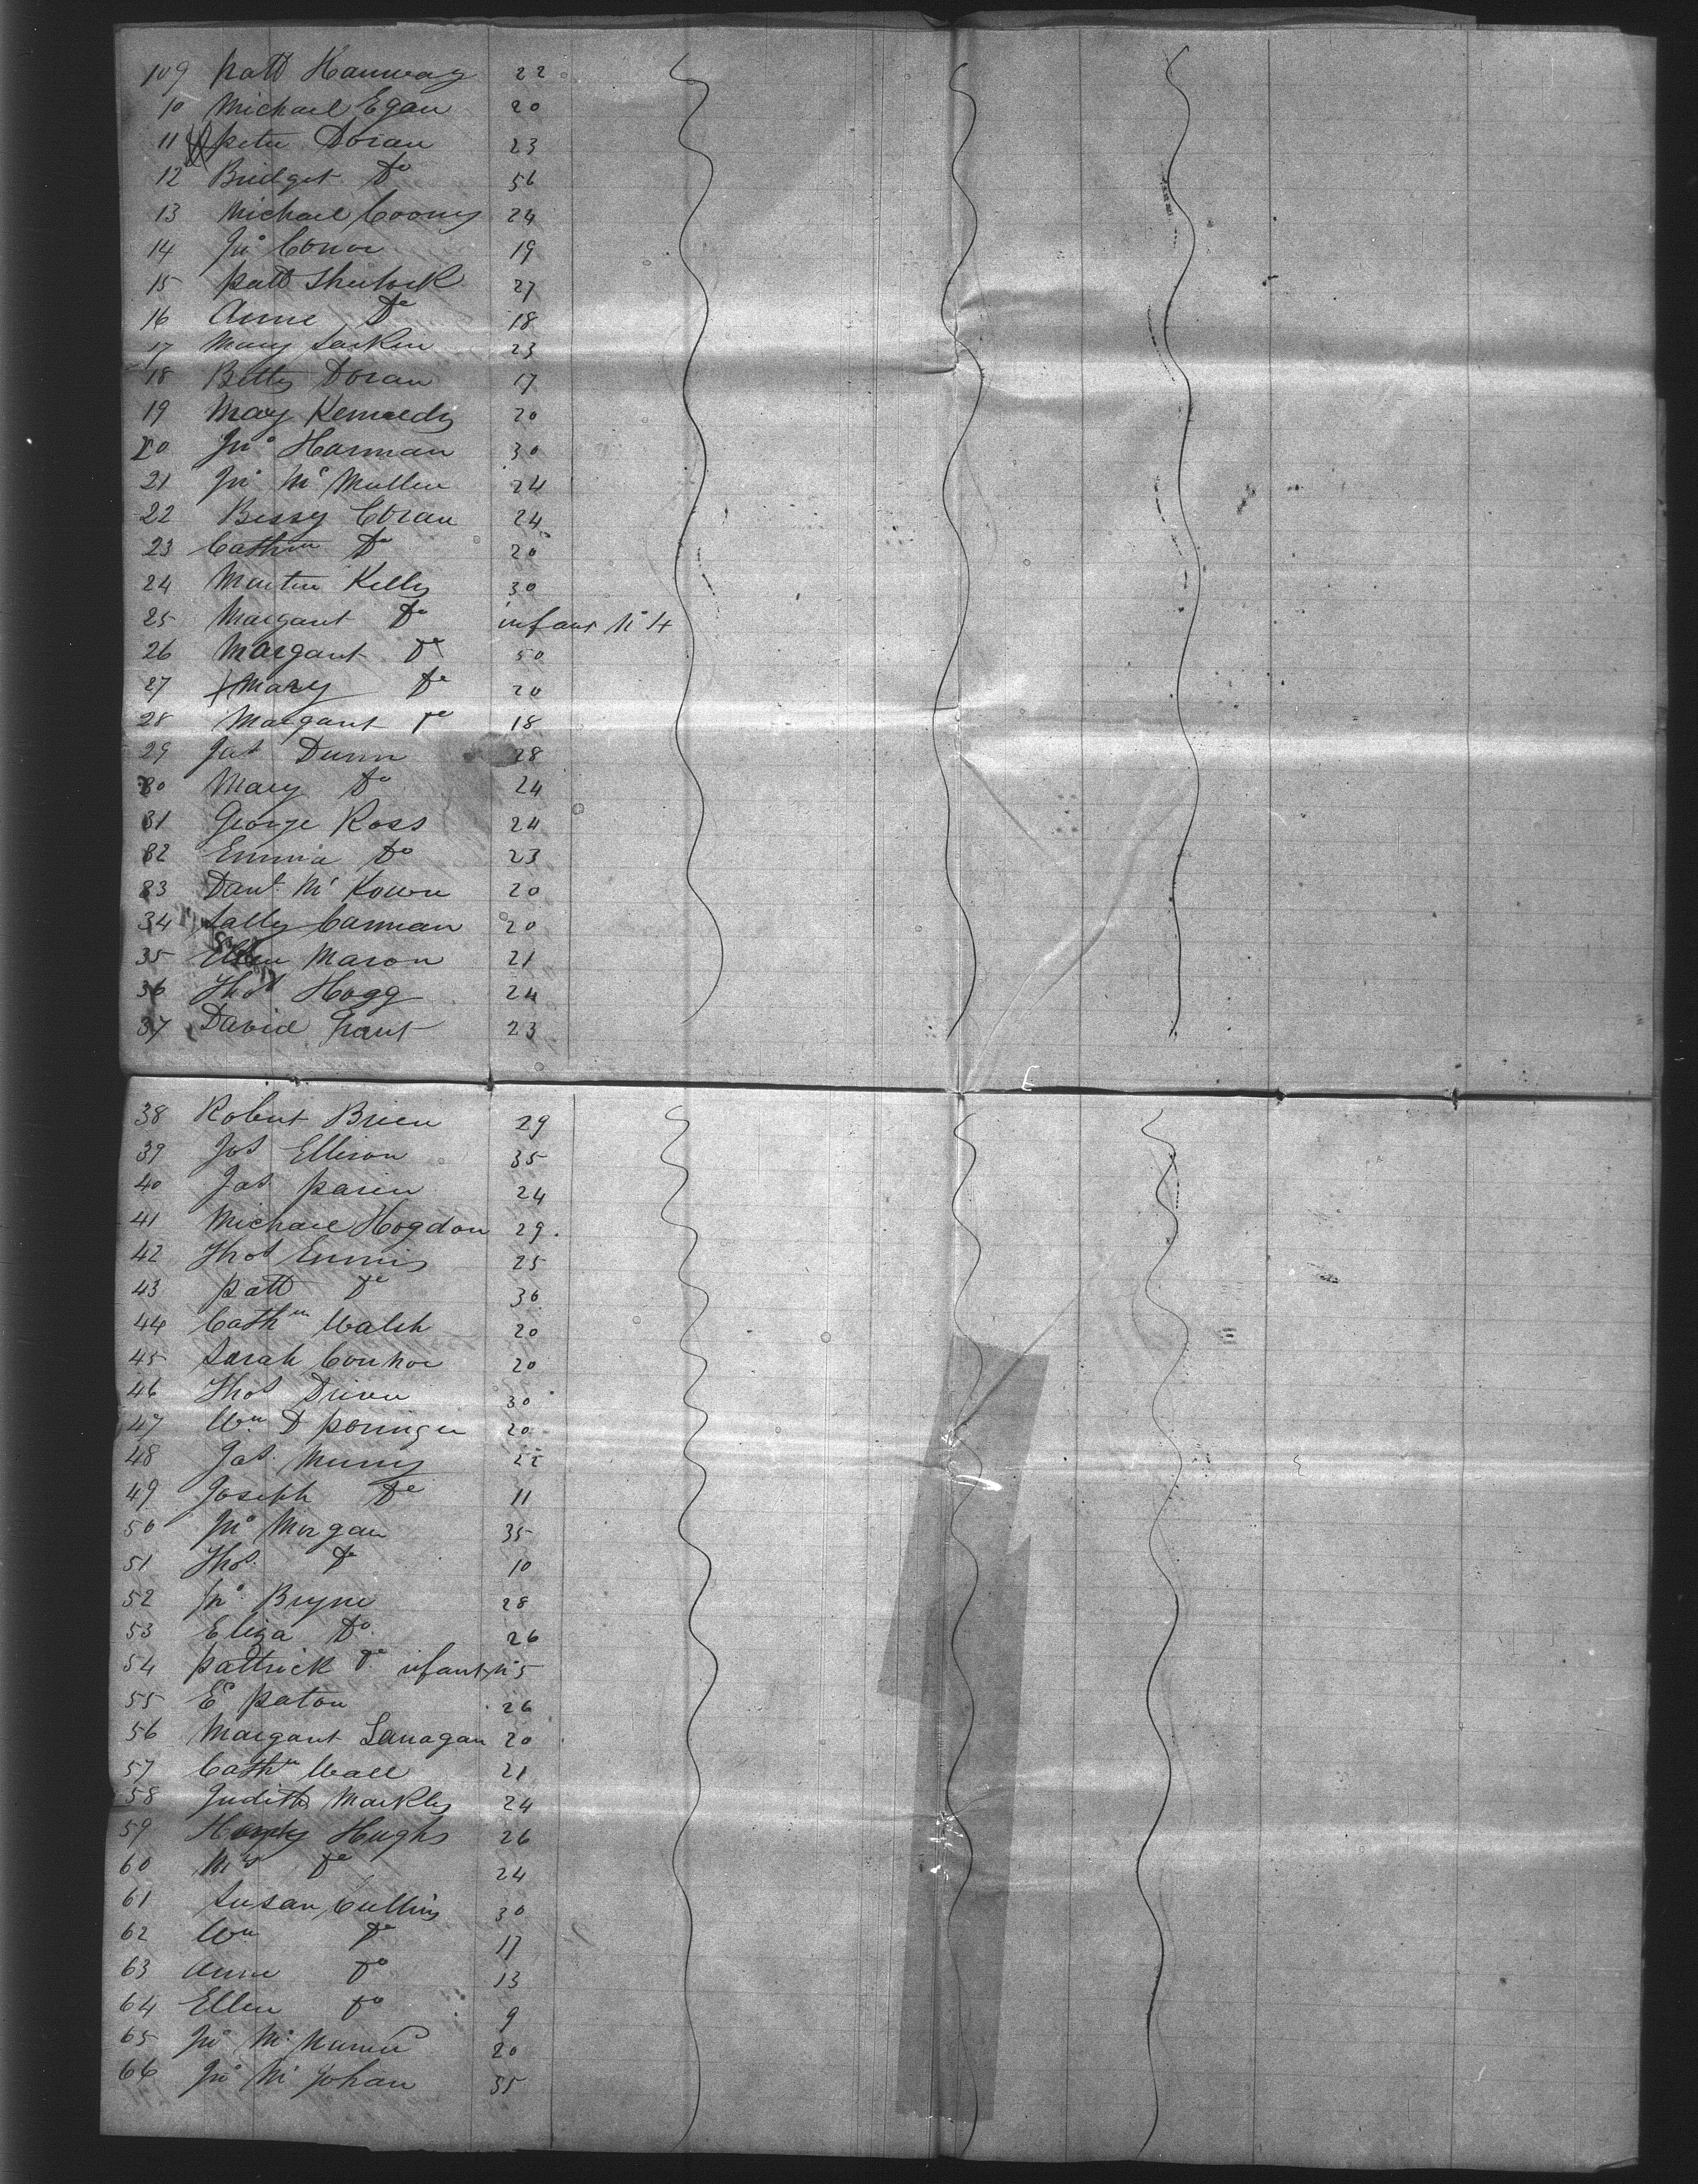 109 Patt Hanway 22
10 Michael Egan 20
11 Peter Doran 23
12 Bridget Do 56
13 Michael Coony 24
14 Jno Conor 19
15 Patt Sherlock 27
16 Anne Do 18
17 Mary Larkin 23
18 Betty Doran 17
19 Mary Kennedy 20
20 Jno Harman 30
21 Jno McMullen 24
22 Bessy Coran 24
23 Cathne Do 20
24 Martin Kelly 30
25 Margaret Do infant No 4
26 Margaret Do 50
27 Mary Do 20
28 Margaret Do 18
29 Jas Dunn 28
30 Mary Do 24
31 George Ross 24
32 Emma Do 23
33 Danl McKown 20
34 Sally Cannan 20
35 Ellen Mason 21
36 Thos Hogg 24
37 David Grant 23
E
38 Robert Brien 29
39 Jos Ellison 35
40 Jas 24
41 Michael Hogdon 29
42 Thos Ennis 25
43 Patt Do 30
44 Cathne Walsh 20
45 Sarah Connor 20
46 Thos 30
47 Wm D 20
48 Jas
49 Joseph Do 11
50 Jno Morgan 35
51 Thos Do 10
52 Jno Bryne 28
53 Eliza Do 26
54 Pattrick Do infant No 5
55 Ed Paton 26
56 Margaret Lanagan 20
57 Cathn Wall 21
58 Judith Markley 24
59 Hughs 26
60 Mrs Do 24
61 Susan Cullins 30
62 Wm Do 17
63 Anne Do 13
64 Ellen Do 9
65 Jno Mc 20
66 Jno McGohan 35